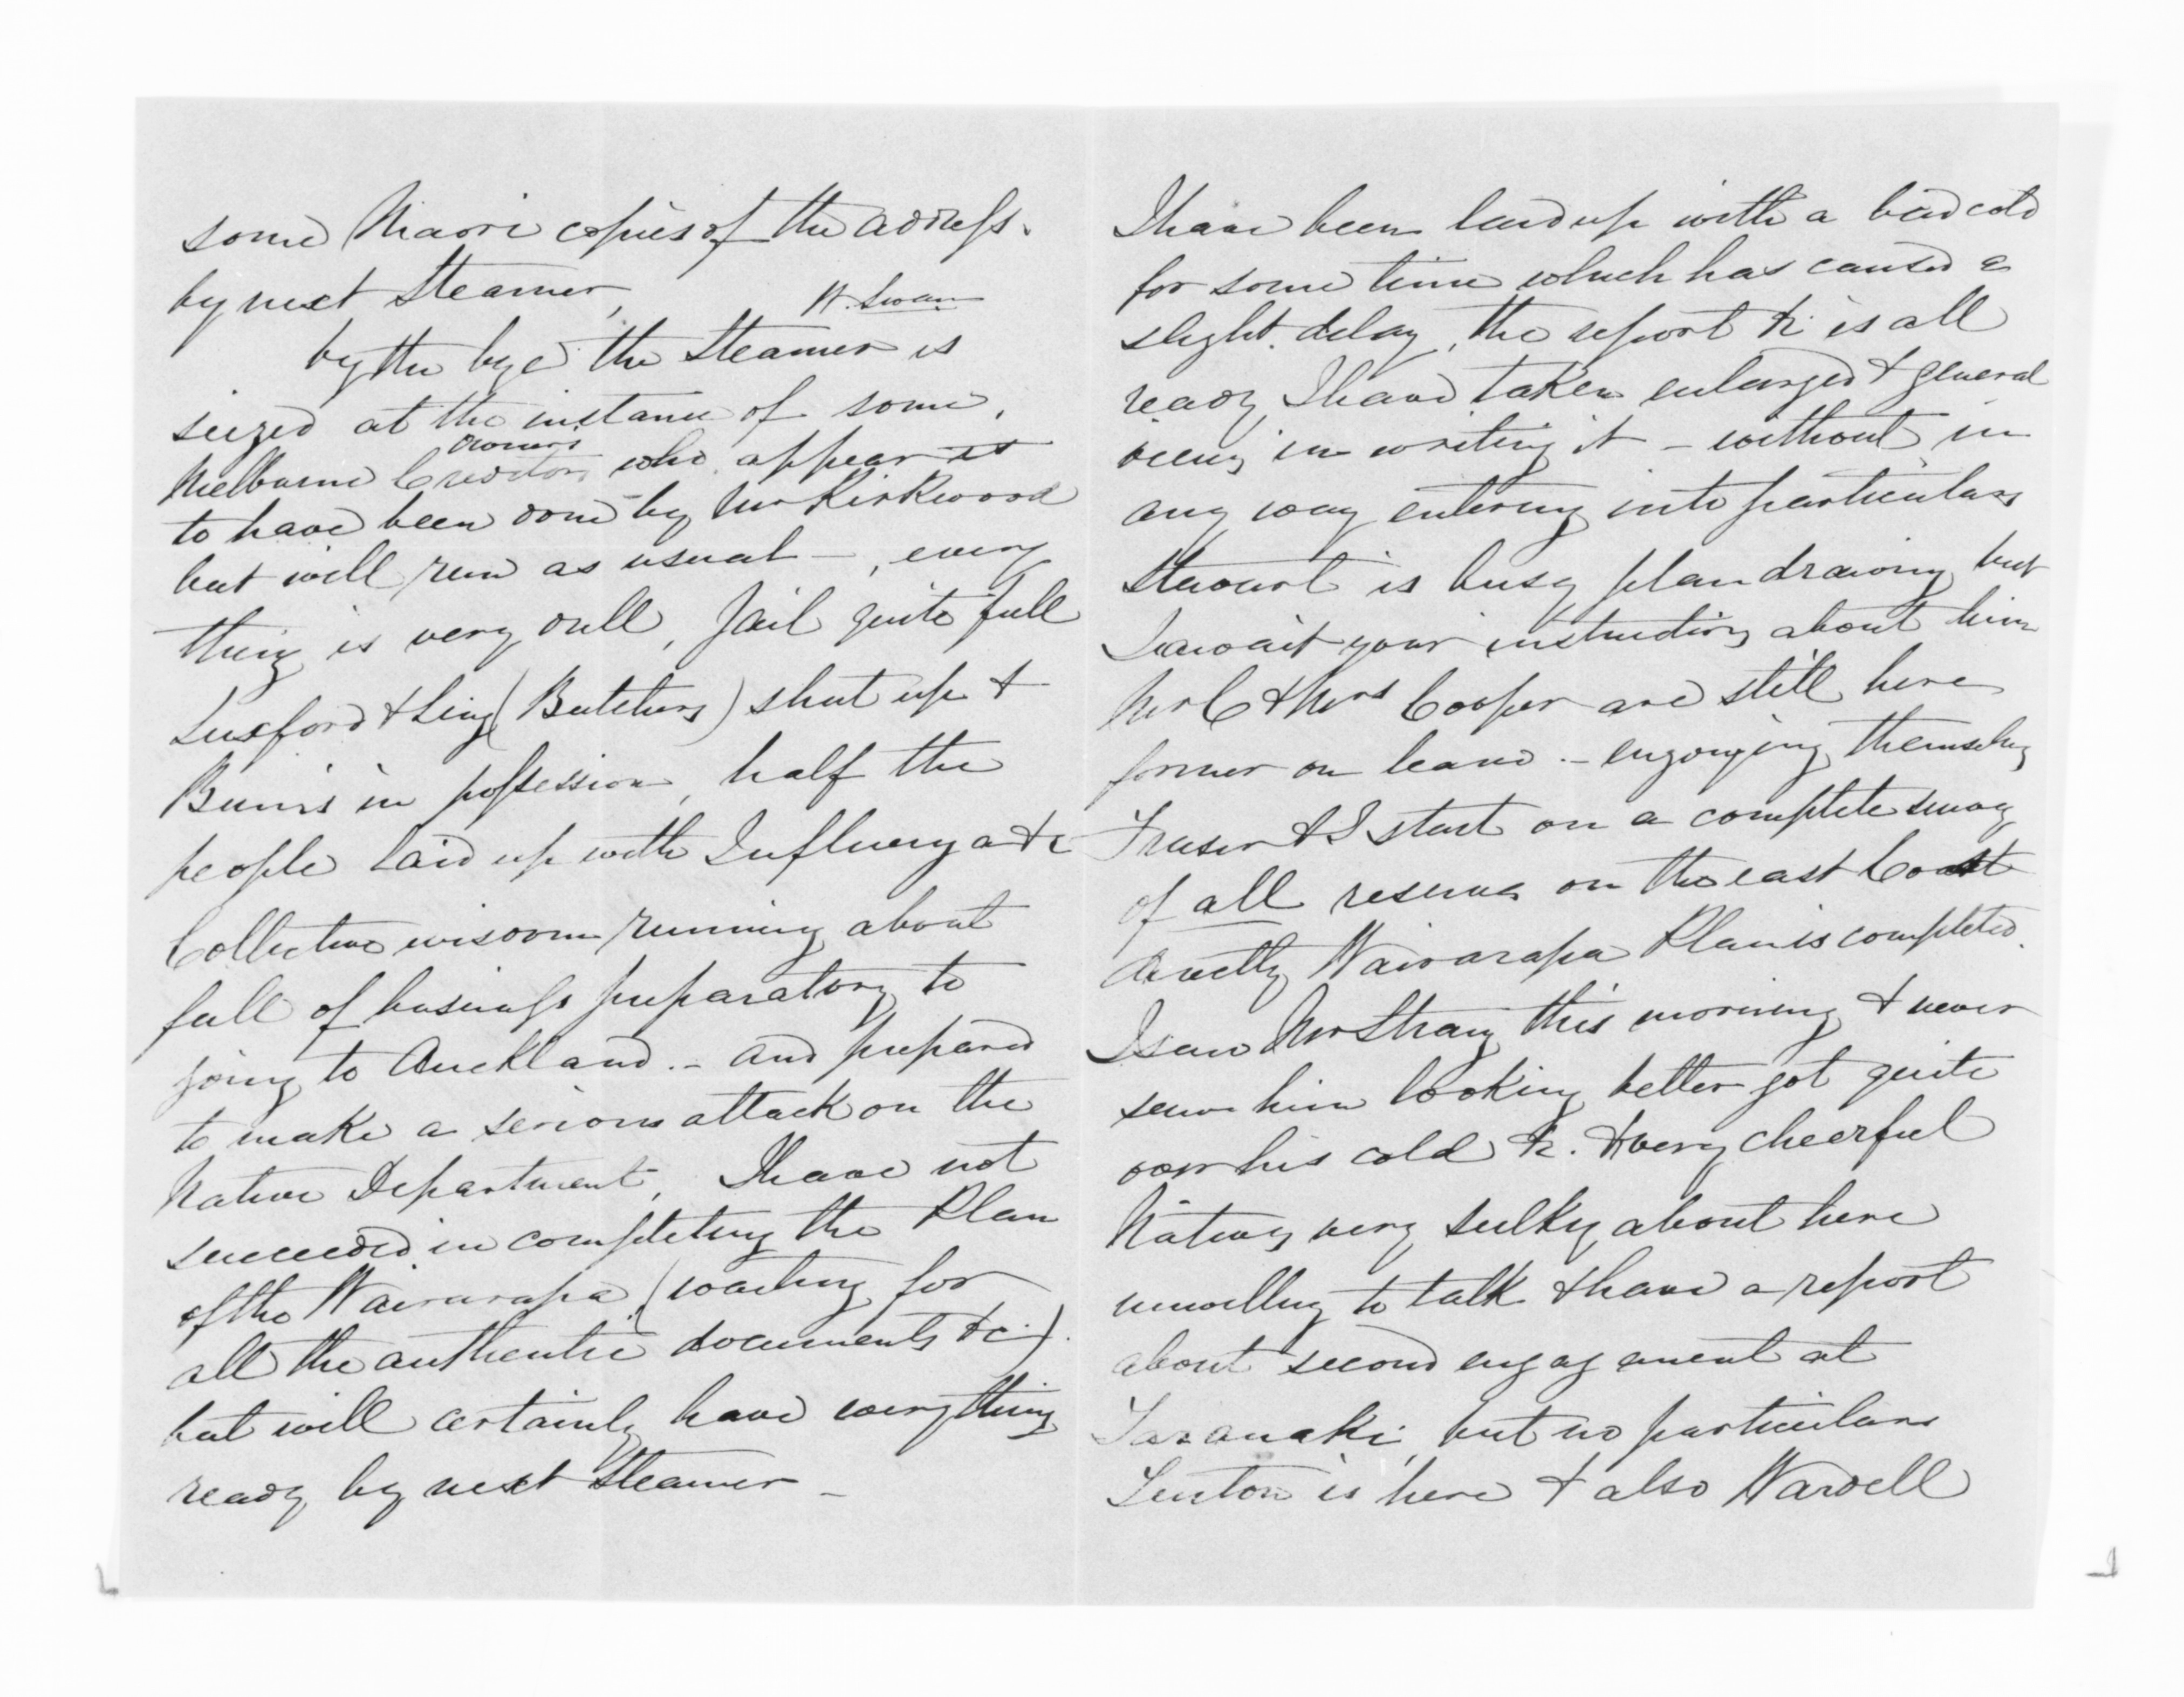 some Maori copies of the address.
by next Steamer,
W. Swan
by the bye the Steamer is
seized at the instance of some,
owners
Melbourne Creditors who appear is
to have been done by Mr Kirkwood
but will run as usual –, every
thing is very dull, Jail quite full
Luxford & Ling (Butchers) shut up &
in possession, half the
people laid up with Influenza &c
Collective wisdom running about
full of business preparatory to
going to Auckland. – and prepared
to make a serious attack on the
Native Department, I have not
succeeded in completing the Plan
of the Wairarapa (waiting for
all the authentic documents &c).
but will certainly have everything
ready by next Steamer –
I have been laid up with a bad cold
for some time which has caused a
slight delay, the report &c is all
ready I have taken enlarged & general
views in writing it – without in
any way entering into particulars
Stewart is busy plan drawing but
I await your instructions about him
Mr C & Mrs Cooper are still here
former on leave. – enjoying themselves
Fraser & I start on a complete swag
of all reserves on the east Coast
directly Wairarapa Plan is completed.
I saw Mr Strang this morning & never
saw him looking better got quite
over his cold &c. & very cheerful
Natives very sulky about here
unwilling to talk & have a report
about second engagement at
Taranaki, but no particulars
Fenton is here & also Wardell